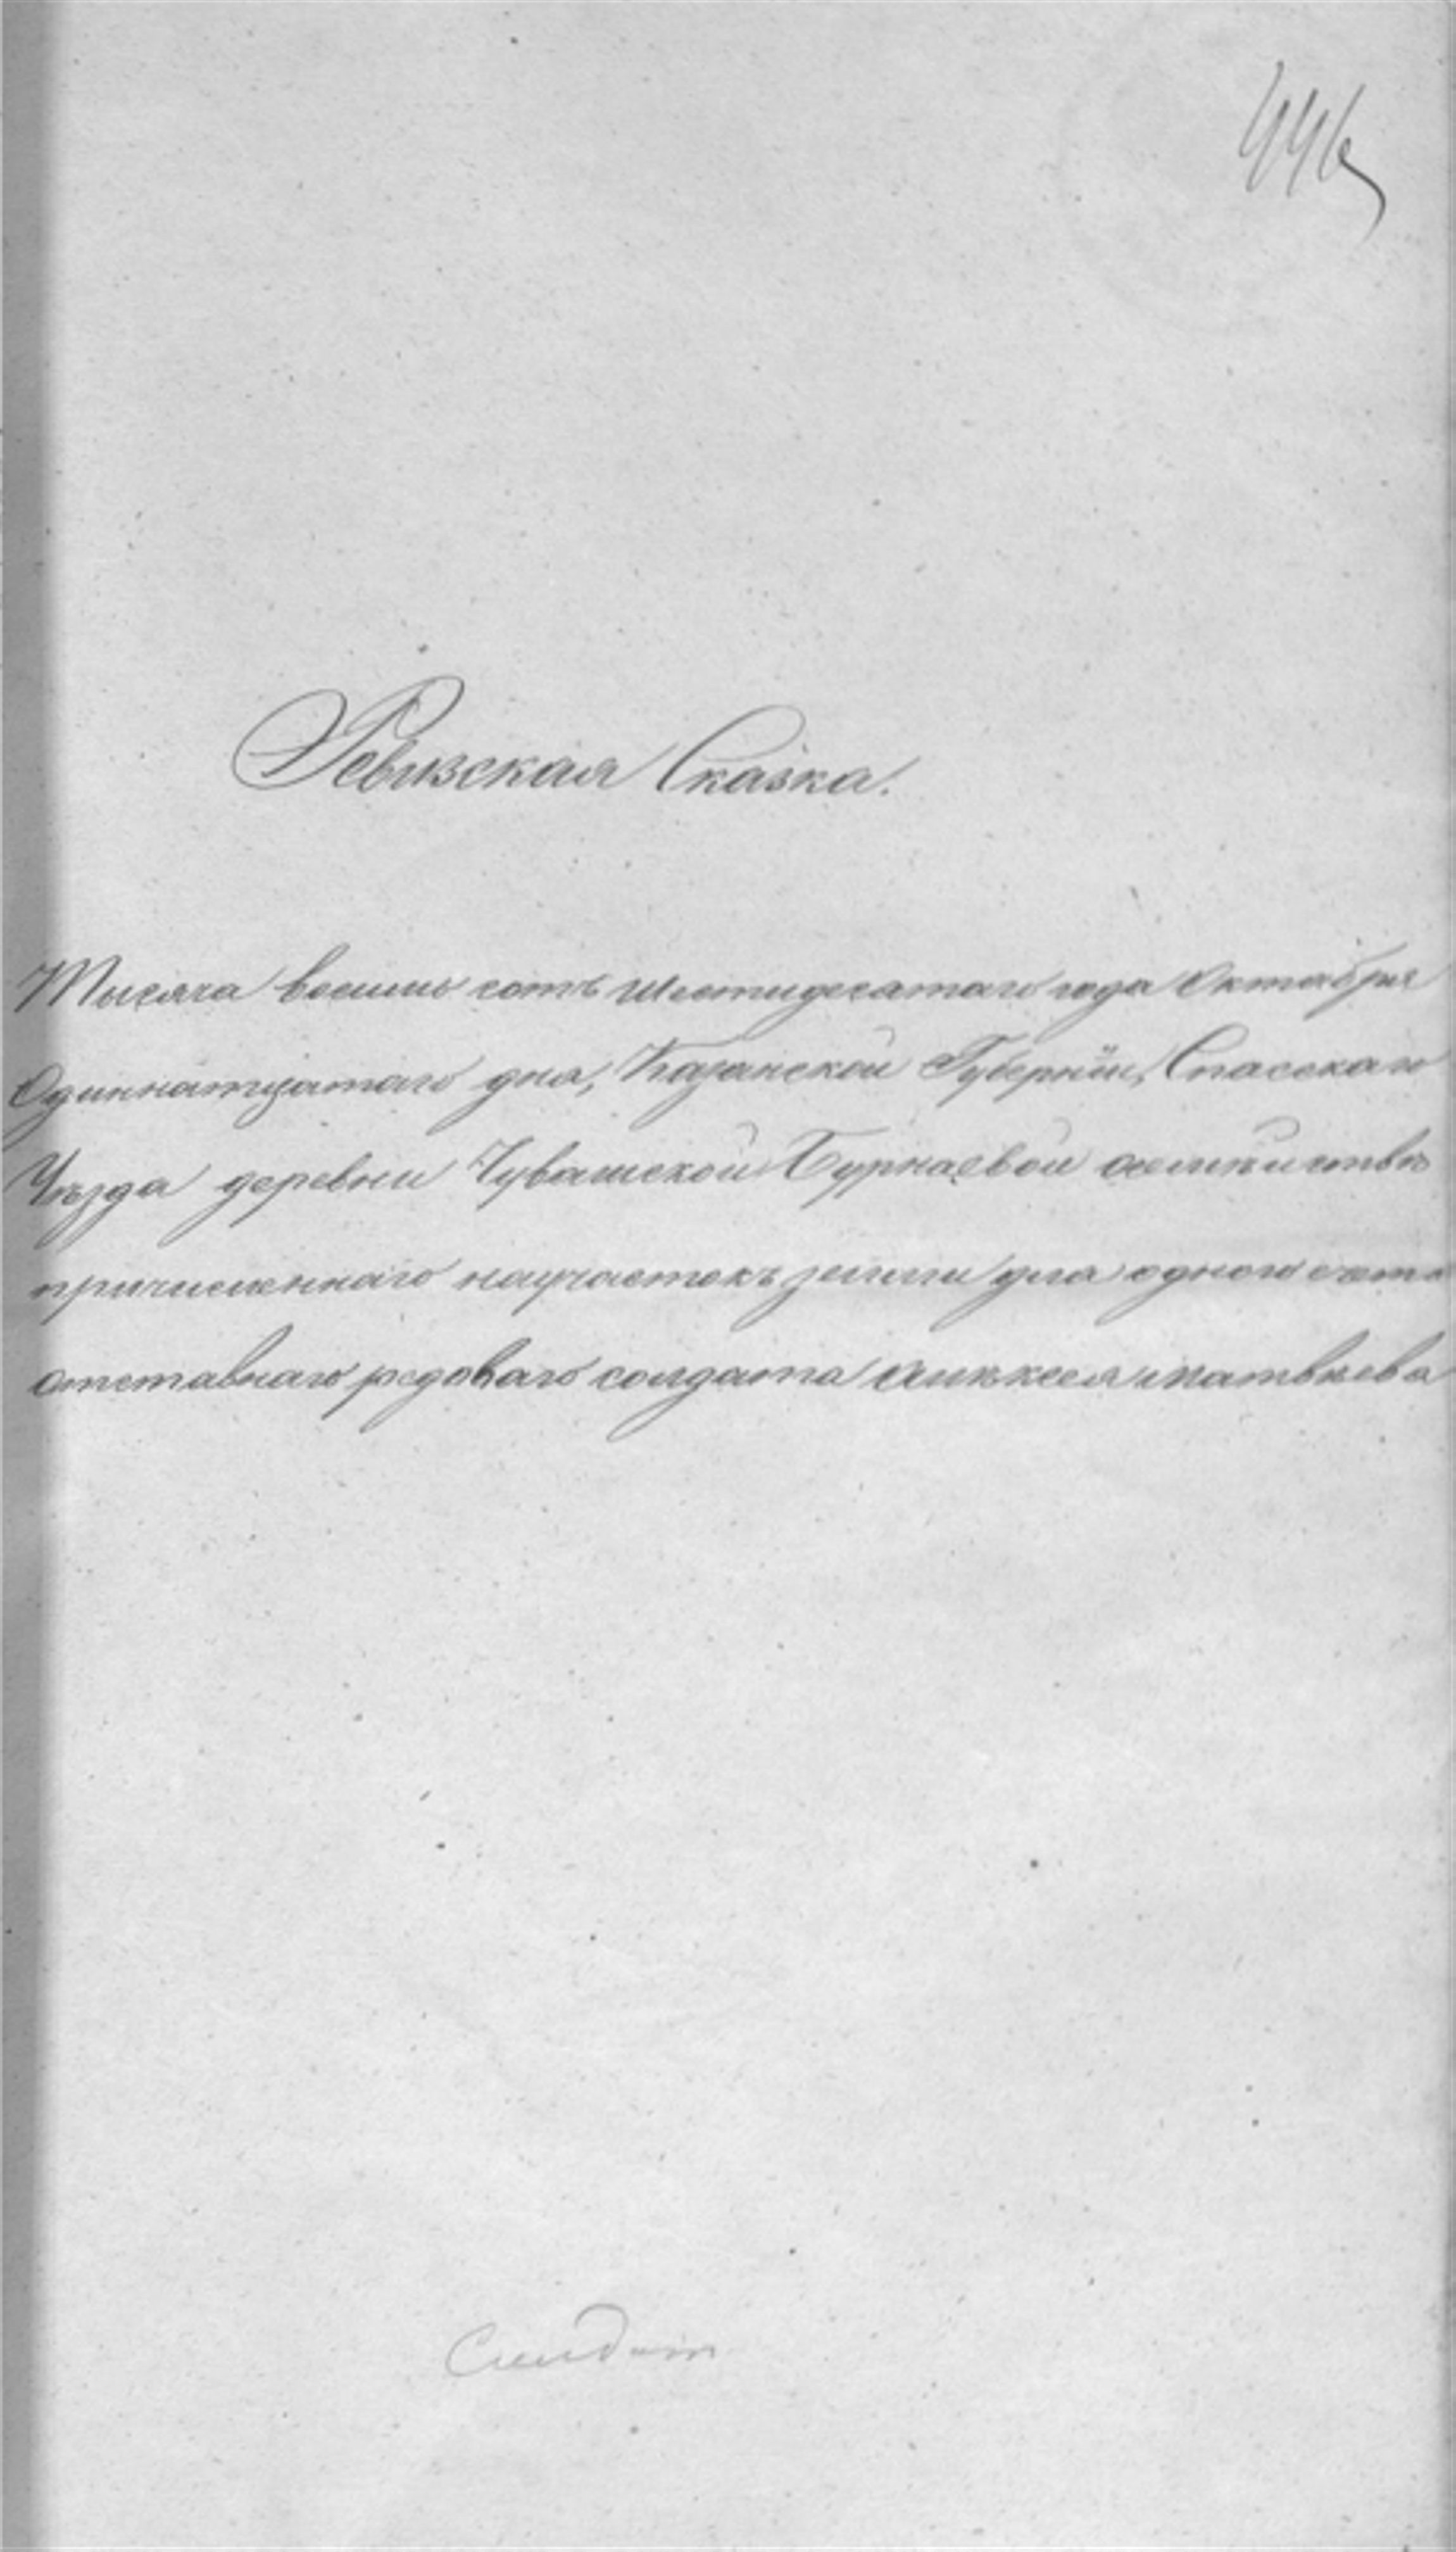 446
Ревизская Сказка.
Тысяча восемь сотъ шестидесятаго года Октября
Одиннатцатаго дня, Казанской Губернїи, Спасскаго
Уѣзда деревни Чувашской Бурнаевой
причисленнаго научастокъ земли для одного
отставнаго рядоваго солдата Алѣксея Матвѣева